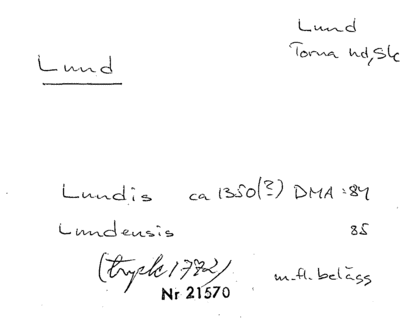 Lund
Torna hd, Sk
Lund
Lundis ca 1350(?) DMA :84
Lundensis 85
(tryck 1772)
m.fl. belägg
Nr 21570